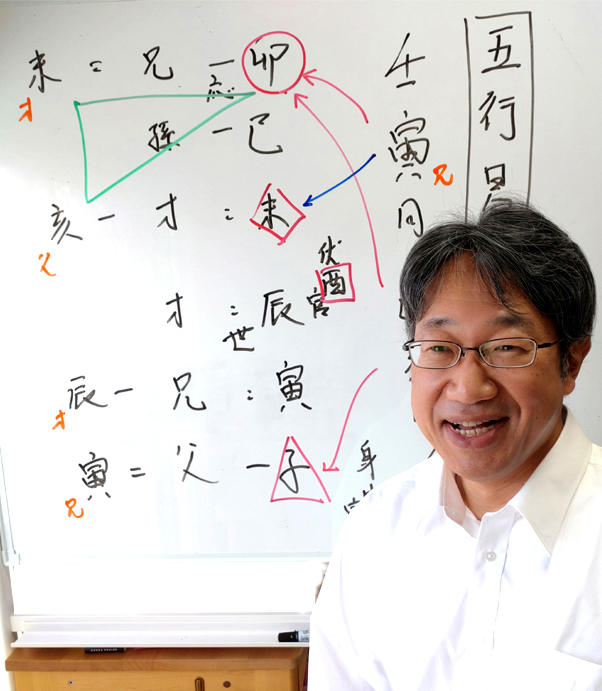 五行
壬寅同
兄
未 = 兄 = 卯
応
才
孫 一 巳
亥 一 才 = 未
父
伏
酉
才 = 辰 官
世
辰 一 兄 = 寅
才
寅 = 父 一 子
兄
身